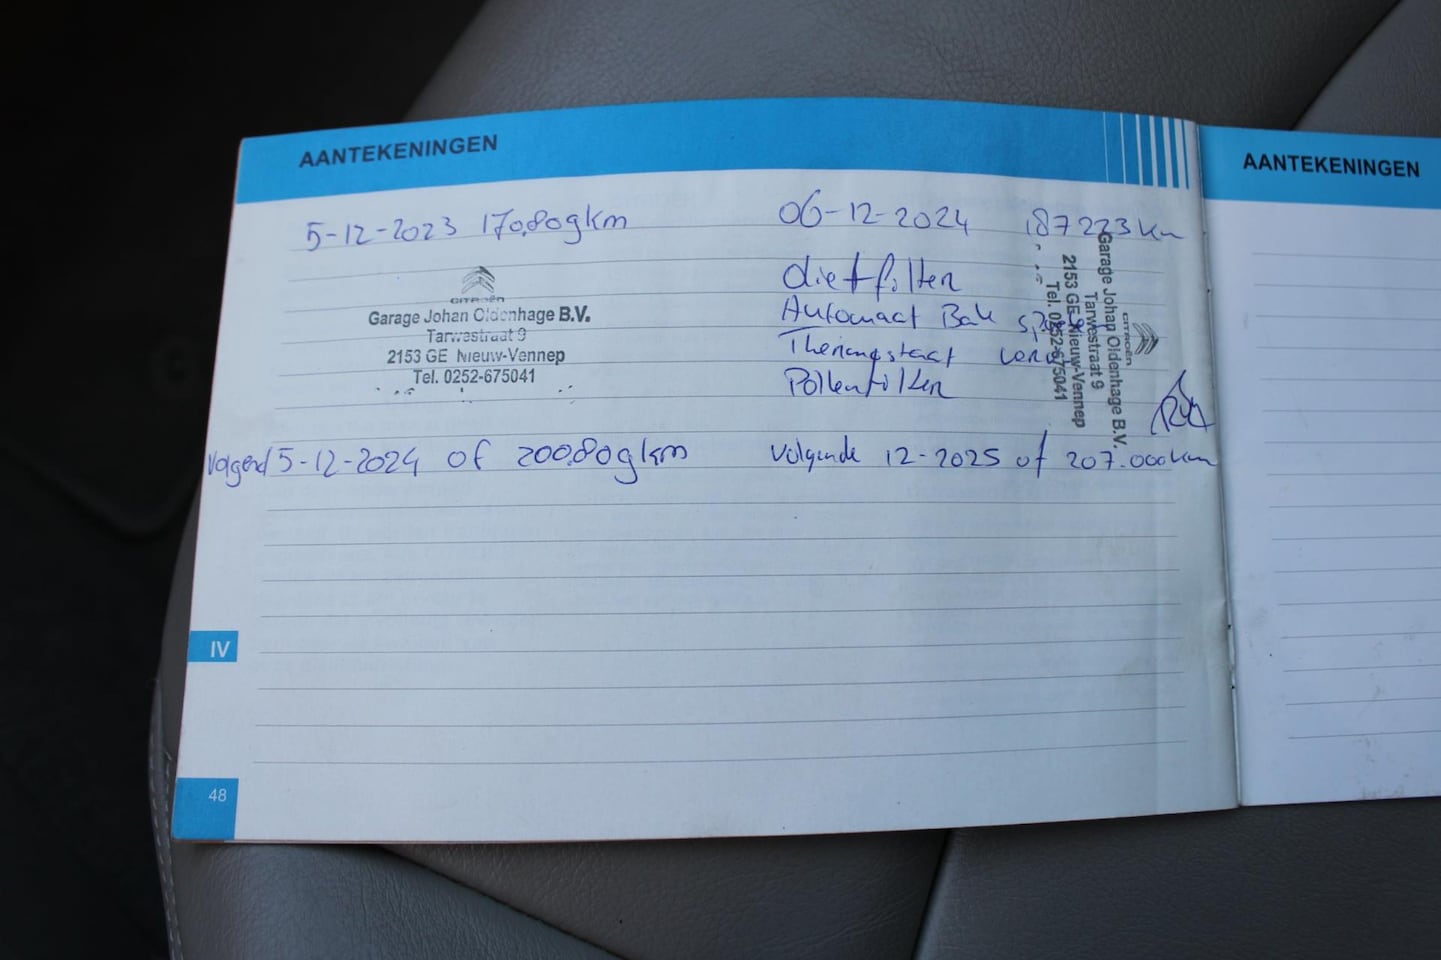 AANTEKENINGEN
5-12-2023 170.809km
CITROËN
Garage Johan Oldenhage B.V.
Tarwestraat 9
2153 GE Nieuw-Vennep
Tel. 0252-675041
Volgend 5-12-2024 of 200.809km
06-12-2024 187223km
Automaat Bak
Pollenfilter
CITROËN
Garage Johan Oldenhage B.V.
Tarwestraat 9
2153 GE Nieuw-Vennep
Tel. 0252-675041
Volgende 12-2025 of 207.000km
IV
48
AANTEKENINGEN